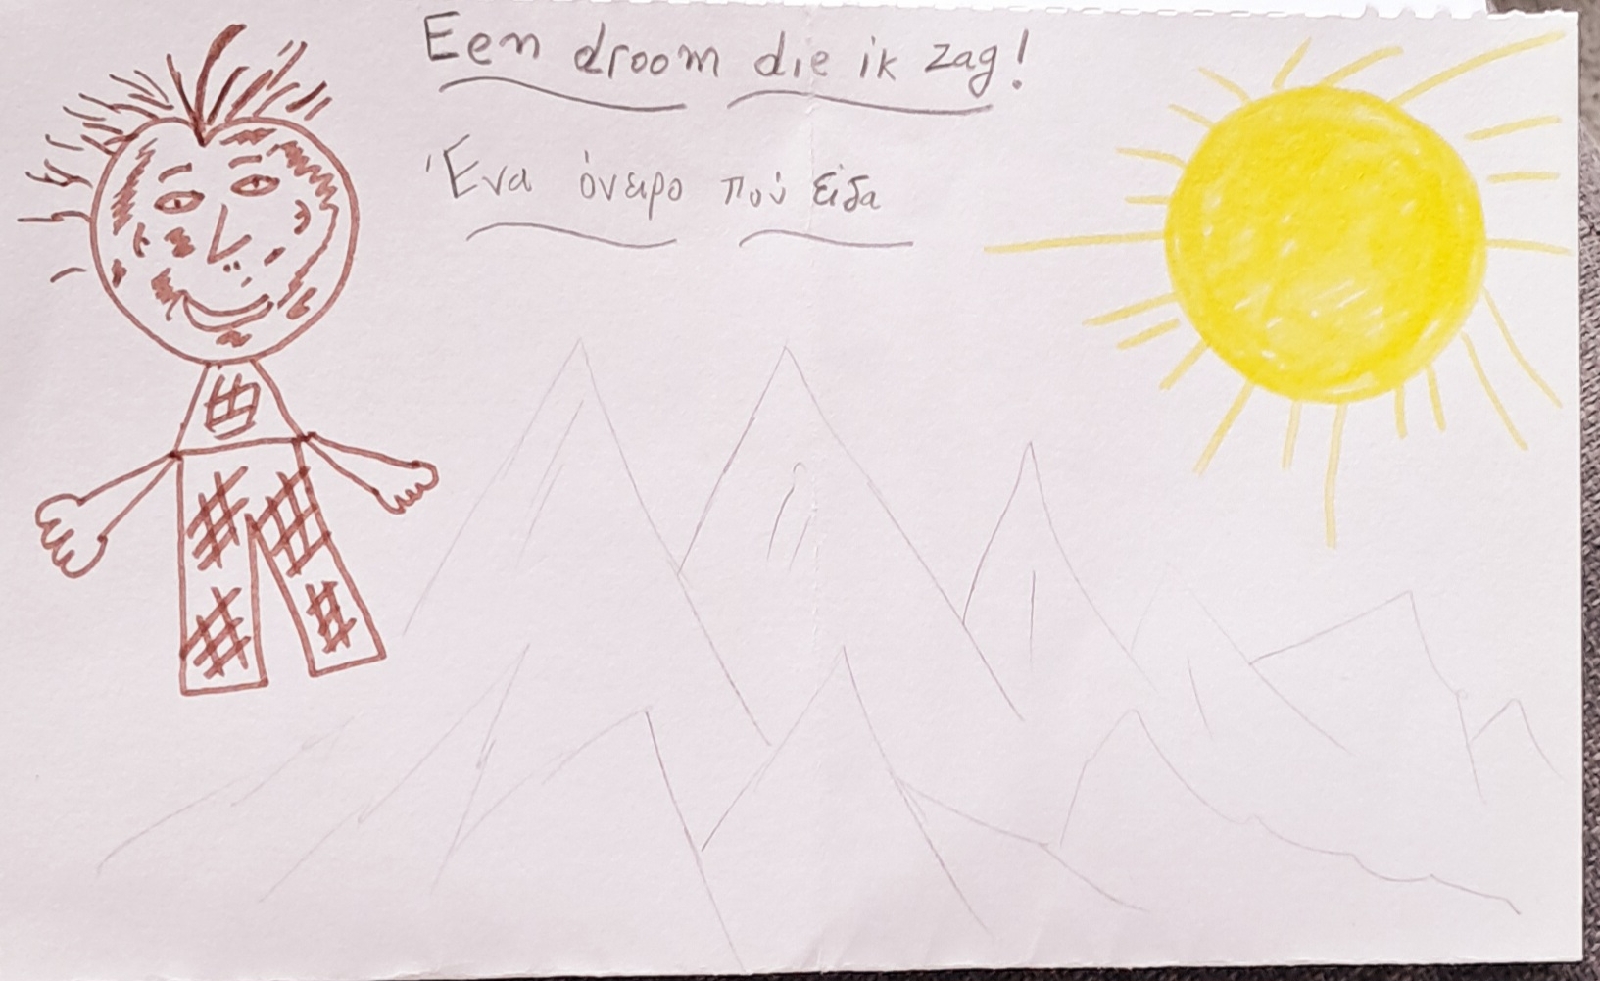 Een droom die ik zag!
Ένα όνειρο πού είδα